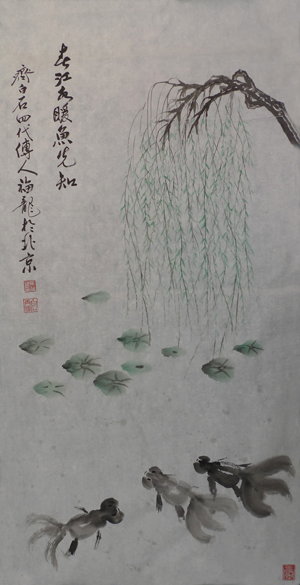 春江水暖魚先知
齊白石四代傳人福龍於北京